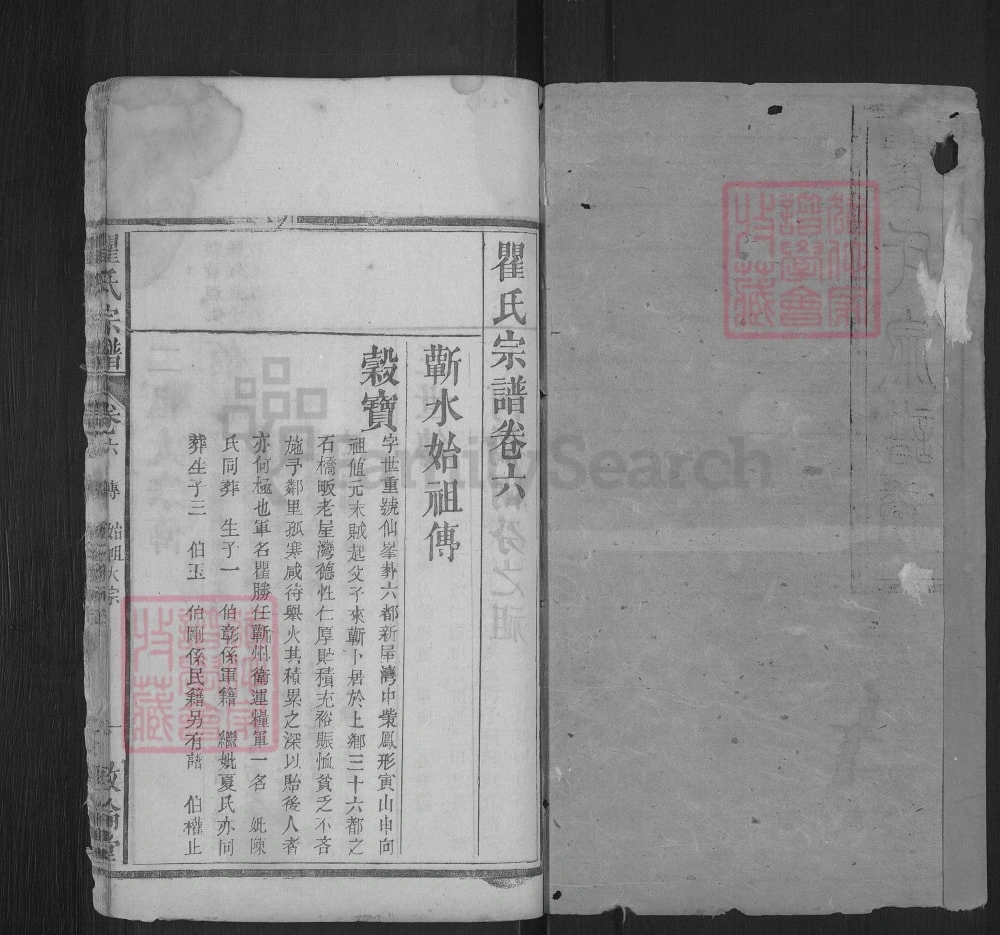 瞿氏宗譜卷六
蘄水始祖傳
穀寶
字世重號仙峯葬六都新屋灣中柴鳳形寅山申向
祖值元末賊起父子來蘄卜居於上鄉三十六都之
石橋畈老屋灣德性仁厚貯積充裕賑恤貧乏不吝
施予鄰里孤寒咸待舉火其積累之深以貽後人者
亦何極也軍名瞿勝任蘄州衛運糧軍一名 妣陳
氏同葬 生子一 伯彰係軍籍 繼妣夏氏亦同
葬生子三 伯玉 伯剛係民籍另有譜 伯權止
瞿氏宗譜
卷六 傳 始祖大宗
一
敦倫堂
譜學會
收藏
FamilySearch